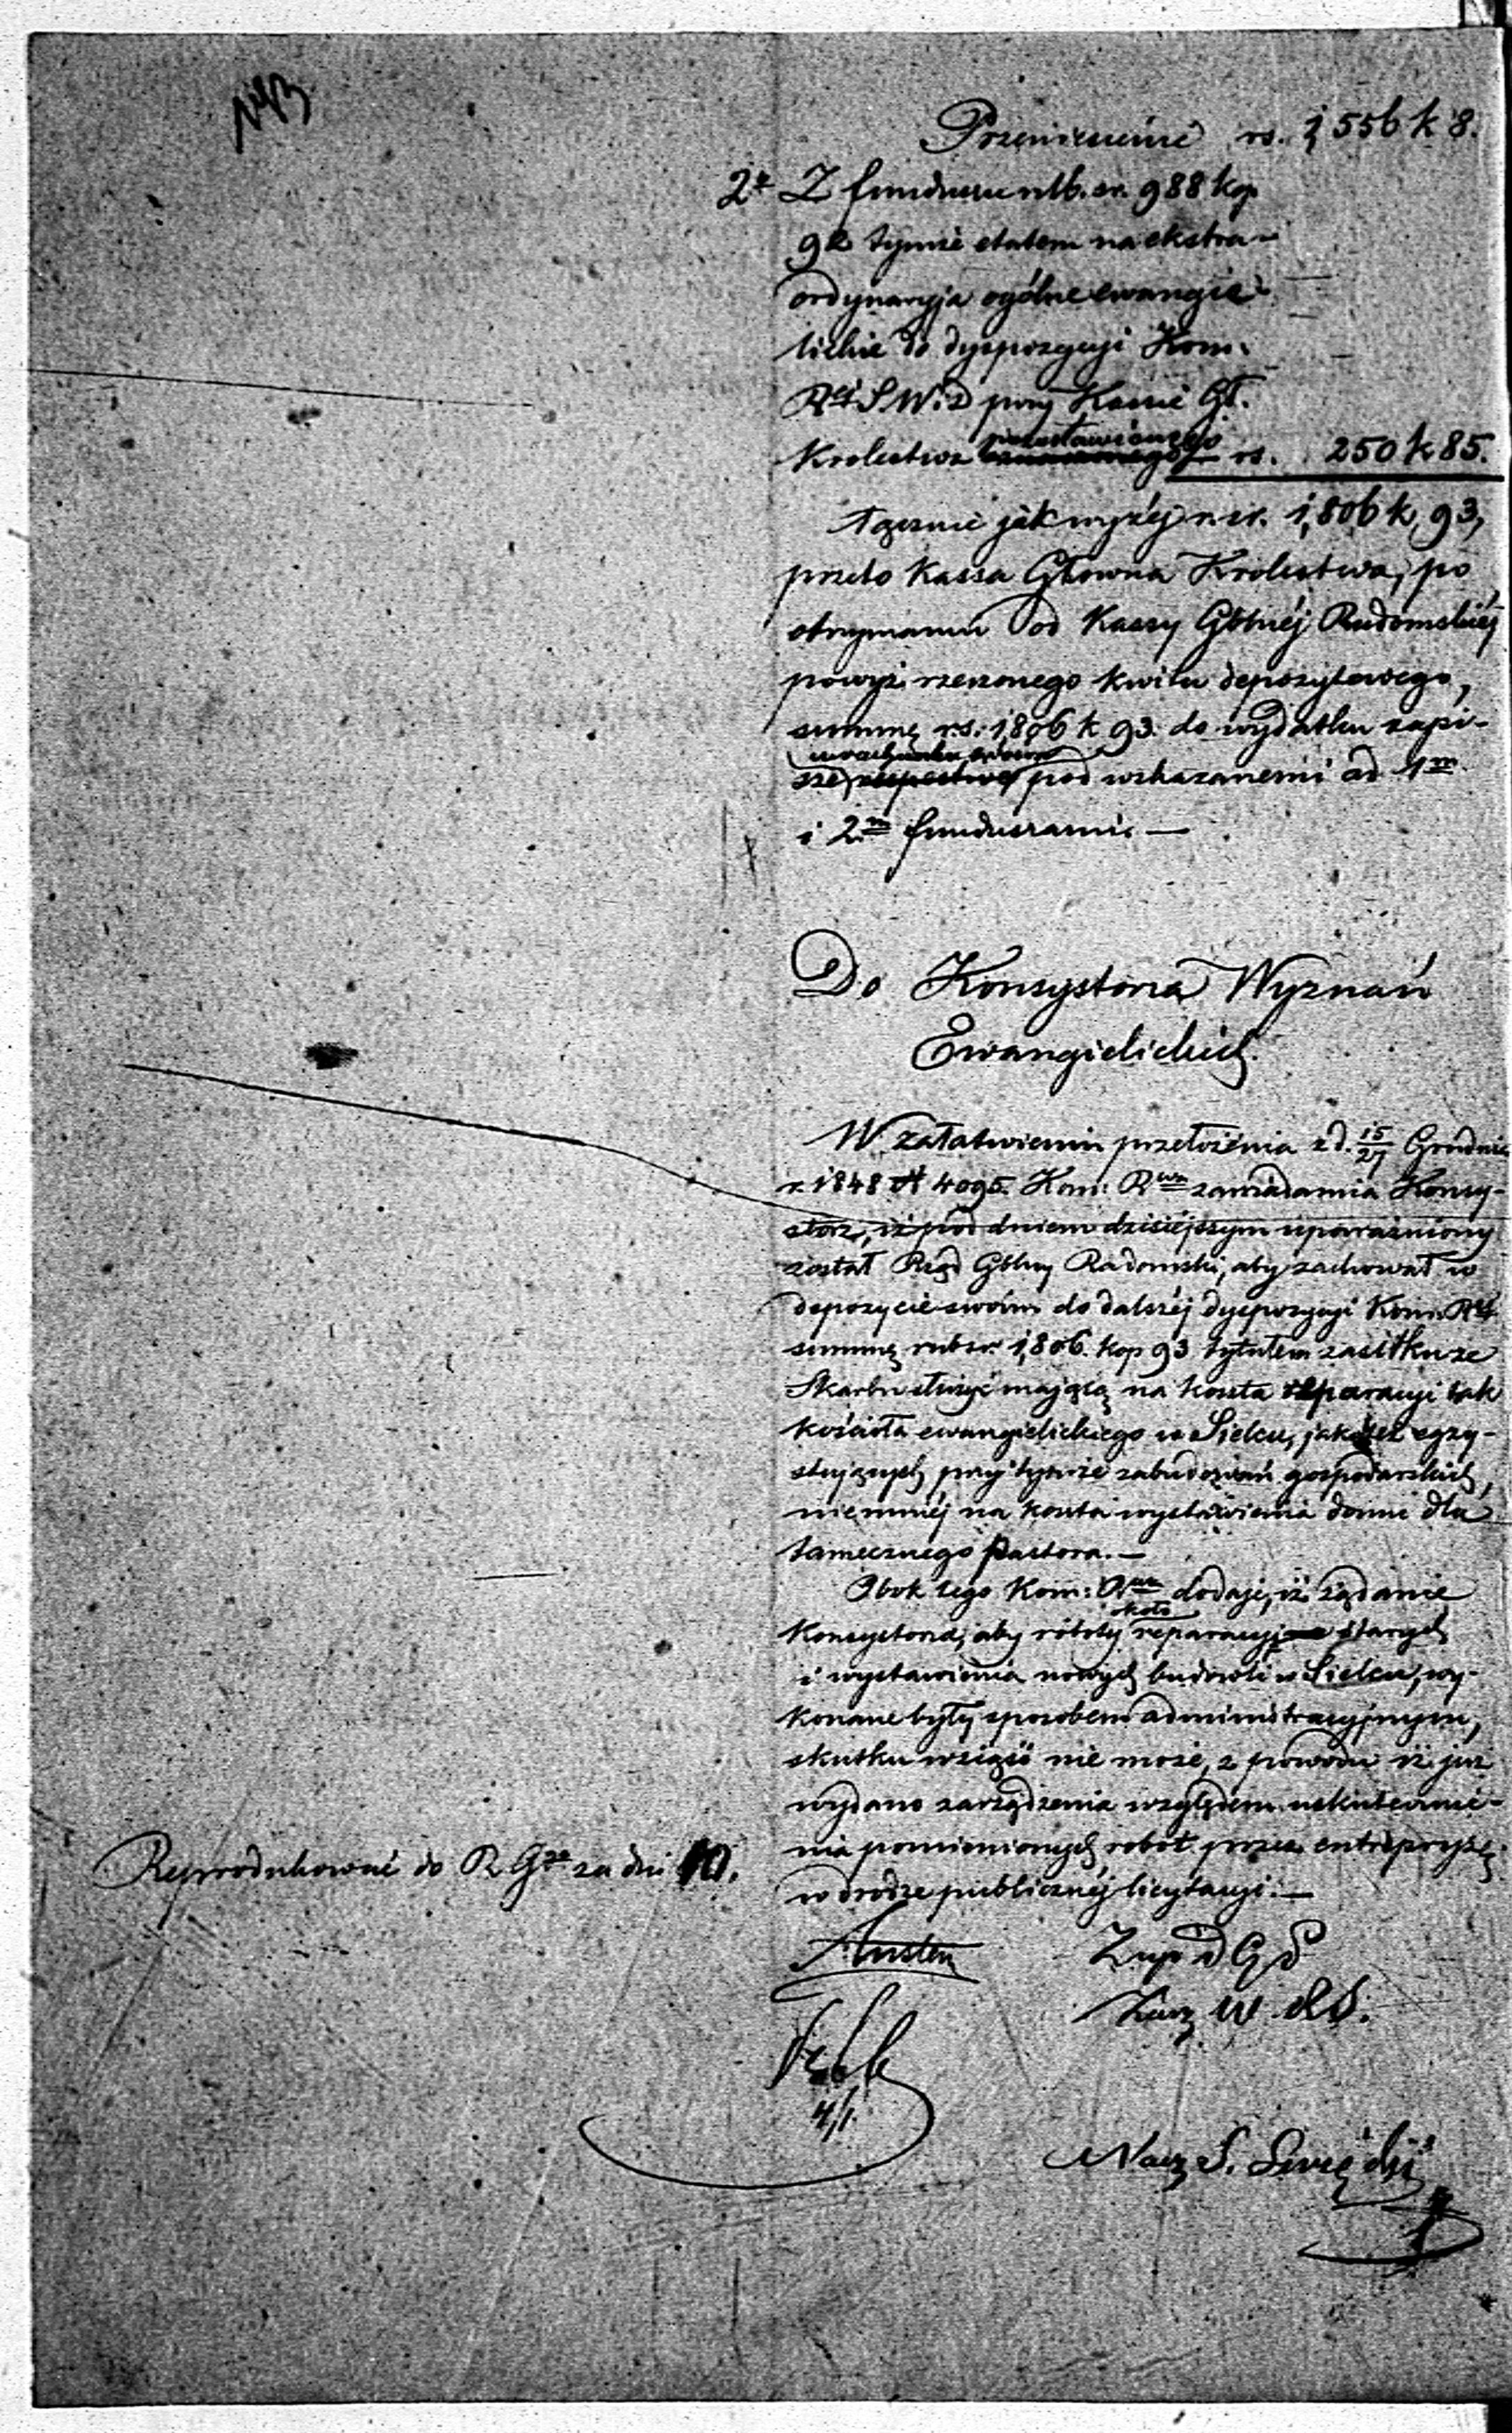 Przeniesienie rs. 1,556 k 8.
2e Z funduszu rub. sr. 988 kop
92 tymże etatem na ekstra-
ordynaryja ogólne ewangie-
lickie do dyspozycji Kom.
Rej S W i D przy Kassie Gł.
Krolestwa pozostawionego rs. 250 k 85.
łącznie jak wyżej r. sr. 1,806 k, 93,
przeto Kassa Główna Krolestwa, po
otrzymaniu od Kassy Gblnéj Radomskiéj
powyż rzeczonego kwitu depozytowego,
summę r.s. 1,806 k 93. do wydatku zapi-
sze pod wskazanemi ad 1m
i 2m funduszami. —
Do Konsystorza Wyznań
Ewangielickich.
W załatwieniu przełożenia z d. 15/27 Grudnia
r. 1848 N 4095. Kom: Rwa zawiadamia Konsy-
storz, iż pod dniem dzisiejszym upoważniony
został Rząd Gblny Radomski, aby zachował w
depozycie swoim do dalszéj dyspozycji Kom. Rej
summę rub sr. 1,806. kop 93 tytułem zasiłku ze
Skarbu służyć mającą na koszta reparacyi tak
kościoła ewangielickiego w Sielcu, jakoteż egzy-
stujących przy tymże zabudowań gospodarskich,
niemniéj na koszta wystawienia domu dla
tamecznego pastora. —
Obok tego Kom: Rwa dodaje, iż żądanie
około
Konsystorza, aby roboty reparacyi starych
i wystawienia nowych budowli w Sielcu, wy-
konane były sposobem administracyjnym,
skutku wziąść nie może, z powodu iż już
wydano zarządzenia względem uskutecznie-
nia pomienionych robót przez entrepryzę
w drodze publicznéj licytacyi. —
Reprodukować do R Ggo za dni 10.
Austen
Z up D G D
4/1.
Nacz S.